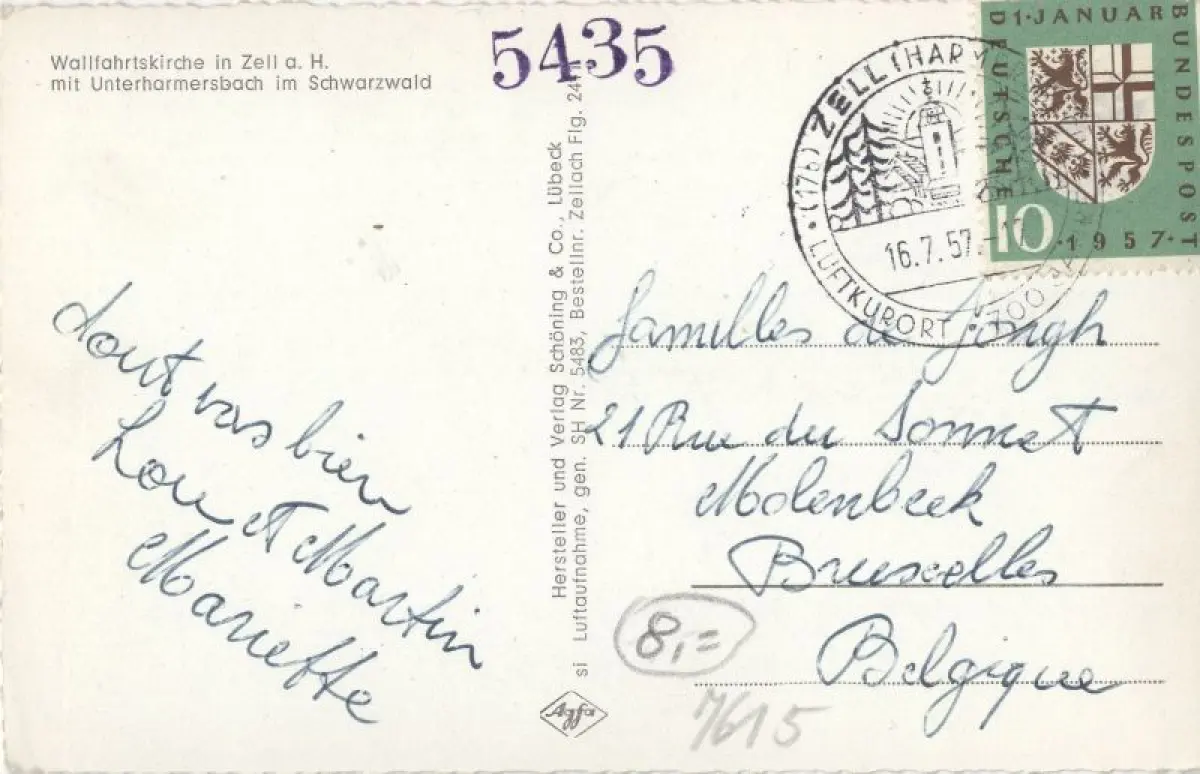 Wallfahrtskirche in Zell a. H.
mit Unterharmersbach im Schwarzwald
5435
(176) ZELL (HARM
16.7.57.-
LUFTKURORT • 700
1•JANUAR
DEUTSCHE
BUNDESPOST
10
•1957•
Hersteller und Verlag Schöning & Co., Lübeck
si Luftaufnahme, gen. SH Nr. 5483, Bestellnr. Zellach Flg. 24
Familles de Jongh
21 Rue du Sonnet
Molenbeek
Bruxelles
Belgique
vas bien
et Martin
Mariette
8,=
7615
Agfa